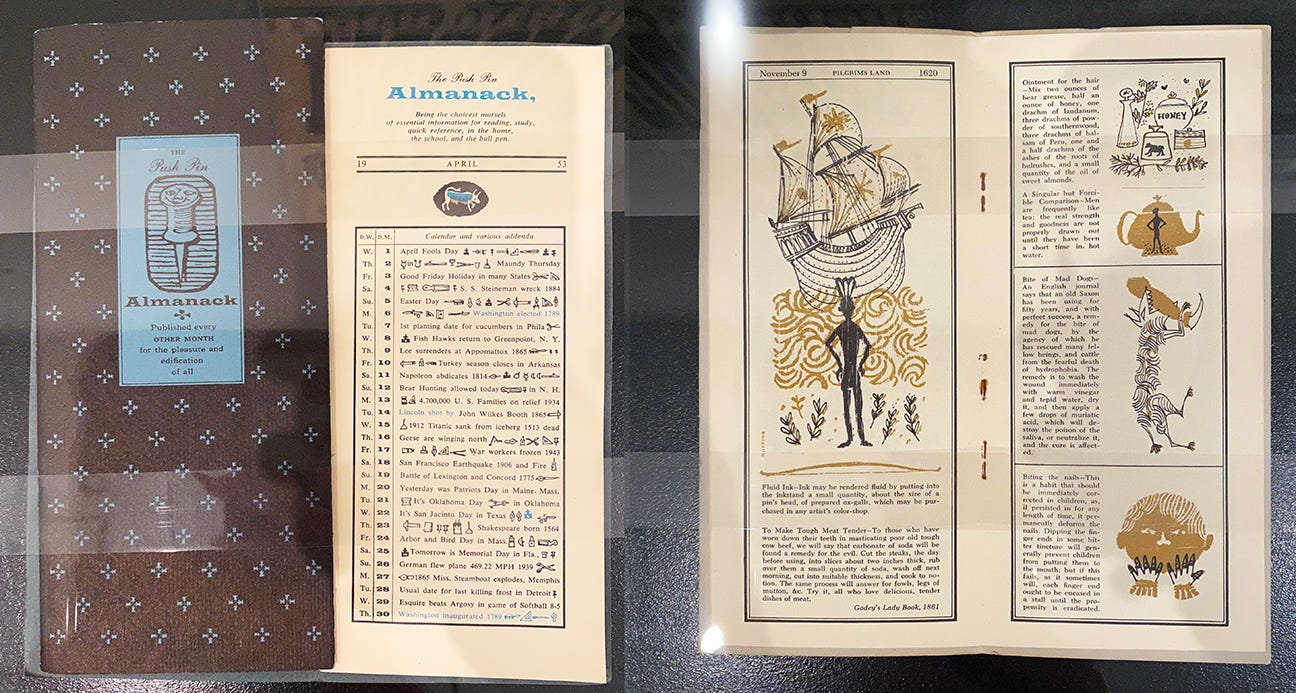 THE
Push Pin
Almanack
Published every
OTHER MONTH
for the pleasure and
edification
of all
The Push Pin
Almanack,
Being the choicest morsels
of essential information for reading, study,
quick reference, in the home,
the school, and the bull pen.
19 APRIL 53
D.W. D.M. Calendar and various addenda
W. 1 April Fools Day
Th. 2 Maundy Thursday
Fr. 3 Good Friday Holiday in many States
Sa. 4 S. S. Steineman wreck 1884
Su. 5 Easter Day
M. 6 Washington elected 1789
Tu. 7 1st planting date for cucumbers in Phila
W. 8 Fish Hawks return to Greenpoint, N. Y.
Th. 9 Lee surrenders at Appomattox 1865
Fr. 10 Turkey season closes in Arkansas
Sa. 11 Napoleon abdicates 1814
Su. 12 Bear Hunting allowed today in N. H.
M. 13 4,700,000 U. S. Families on relief 1934
Tu. 14 Lincoln shot by John Wilkes Booth 1865
W. 15 1912 Titanic sank from iceberg 1513 dead
Th. 16 Geese are winging north
Fr. 17 War workers frozen 1943
Sa. 18 San Francisco Earthquake 1906 and Fire
Su. 19 Battle of Lexington and Concord 1775
M. 20 Yesterday was Patriots Day in Maine. Mass.
Tu. 21 It's Oklahoma Day in Oklahoma
W. 22 It's San Jacinto Day in Texas
Th. 23 Shakespeare born 1564
Fr. 24 Arbor and Bird Day in Mass.
Sa. 25 Tomorrow is Memorial Day in Fla.,
Su. 26 German flew plane 469.22 MPH 1939
M. 27 1865 Miss. Steamboat explodes, Memphis
Tu. 28 Usual date for last killing frost in Detroit
W. 29 Esquire beats Argosy in game of Softball 8-5
Th. 30 Washington inaugurated 1789
November 9 PILGRIMS LAND 1620
RUFFINS
Fluid Ink—Ink may be rendered fluid by putting into
the inkstand a small quantity, about the size of a
pin's head, of prepared ox-galls, which may be pur-
chased in any artist's color-shop.
To Make Tough Meat Tender—To those who have
worn down their teeth in masticating poor old tough
cow beef, we will say that carbonate of soda will be
found a remedy for the evil. Cut the steaks, the day
before using, into slices about two inches thick, rub
over them a small quantity of soda, wash off next
morning, cut into suitable thickness, and cook to no-
tion. The same process will answer for fowls, legs of
mutton, &c. Try it, all who love delicious, tender
dishes of meat.
Godey's Lady Book, 1861
Ointment for the hair
—Mix two ounces of
bear grease, half an
ounce of honey, one
drachm of laudanum,
three drachms of pow-
der of southernwood,
three drachms of bal-
sam of Peru, one and
a half drachms of the
ashes of the roots of
bulrushes, and a small
quantity of the oil of
sweet almonds.
HONEY
A Singular but Forci-
ble Comparison—Men
are frequently like
tea: the real strength
and goodness are not
properly drawn out
until they have been
a short time in. hot
water.
Bite of Mad Dogs—
An English journal
says that an old Saxon
has been using for
fifty years, and with
perfect success, a rem-
edy for the bite of
mad dogs, by the
agency of which he
has rescued many fel-
low beings, and cattle
from the fearful death
of hydrophobia. The
remedy is to wash the
wound immediately
with warm vinegar
and tepid water, dry
it, and then apply a
few drops of muriatic
acid, which will de-
stroy the poison of the
saliva, or neutralize it,
and the cure is affect-
ed.
Biting the nails—This
is a habit that should
be immediately cor-
rected in children, as,
if persisted in for any
length of time, it per-
manently deforms the
nails. Dipping the fin-
ger ends in some bit-
ter tincture will gen-
erally prevent children
from putting them to
the mouth; but if this
fails, as it sometimes
will, each finger end
ought to be encased in
a stall until the pro-
pensity is eradicated.